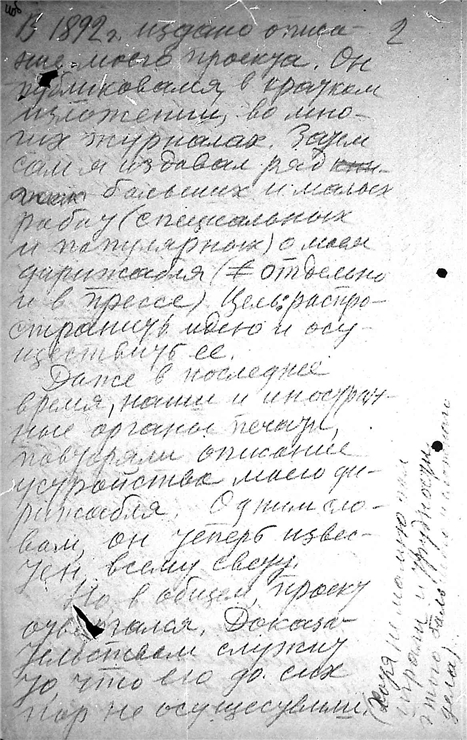 2
В 1892 г. издано описа-
ние моего проекта. Он
публиковался, в кратком
изложении, во мно-
гих журналах. Затем
сам я издавал ряд
больших и малых
работ (специальных
и популярных) о моем
дирижабле (отдельно
и в прессе). Цель: распро-
странить идею и осу-
ществить ее.
Даже в последнее
время, наши и иностран-
ные органы печати,
повторяли описание
устройства моего ди-
рижабля. Одним сло-
вом, он теперь извес-
тен всему свету.
Но, в общем, проект
отвергался. Доказа-
тельством служит
то, что его до сих
пор не осуществили.
(Хотя не мало тут
играли и трудности
этого
дела).